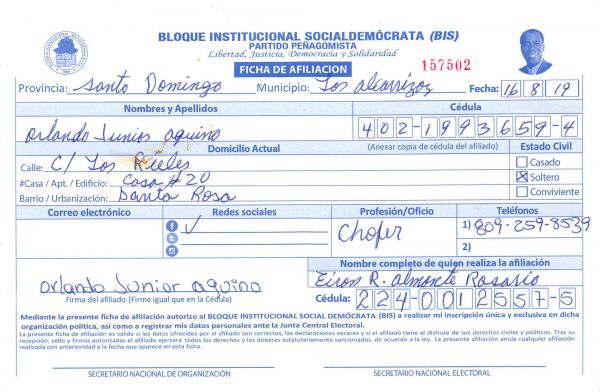 BLOQUE INSTITUCIONAL SOCIALDEMÓCRATA (BIS)
PARTIDO PEÑAGOMISTA
Libertad, Justicia, Democracia y Solidaridad
FICHA DE AFILIACION
157502
Provincia: Santo Domingo Municipio: Los alcarrizos Fecha: 16 8 19
Nombres y Apellidos Cédula
orlando Junior aquino 402-1993659-4
Domicilio Actual (Anexar copia de cédula del afiliado) Estado Civil
Calle: C/ Los Rieles Casado
#Casa / Apt. / Edificio: Casa #20 Soltero
Barrio / Urbanización: Santa Rosa Conviviente
Correo electrónico Redes sociales Profesión/Oficio Teléfonos
Chofer 1) 809-259-8539
2)
Nombre completo de quien realiza la afiliación
orlando Junior aquino Eiron R. almonte Rosario
Firma del afiliado (Firme igual que en la Cédula) Cédula: 224-0012557-5
Mediante la presente ficha de afiliación autorizo al BLOQUE INSTITUCIONAL SOCIAL DEMÓCRATA (BIS) a realizar mi inscripción única y exclusiva en dicha
organización política, así como a registrar mis datos personales ante la Junta Central Electoral.
La presente ficha de afiliación es válida si los datos ofrecidos por el afiliado son correctos, las declaraciones veraces y si el afiliado tiene el disfrute de sus derechos civiles y políticos. Tras su
recepción, sello y firmas autorizadas el afiliado ejercerá todos los derechos y los deberes estatutariamente sancionados, de acuerdo a la ley. La presente afiliación anula cualquier afiliación
realizada con anterioridad a la fecha que aparece en esta ficha.
SECRETARIO NACIONAL DE ORGANIZACIÓN SECRETARIO NACIONAL ELECTORAL